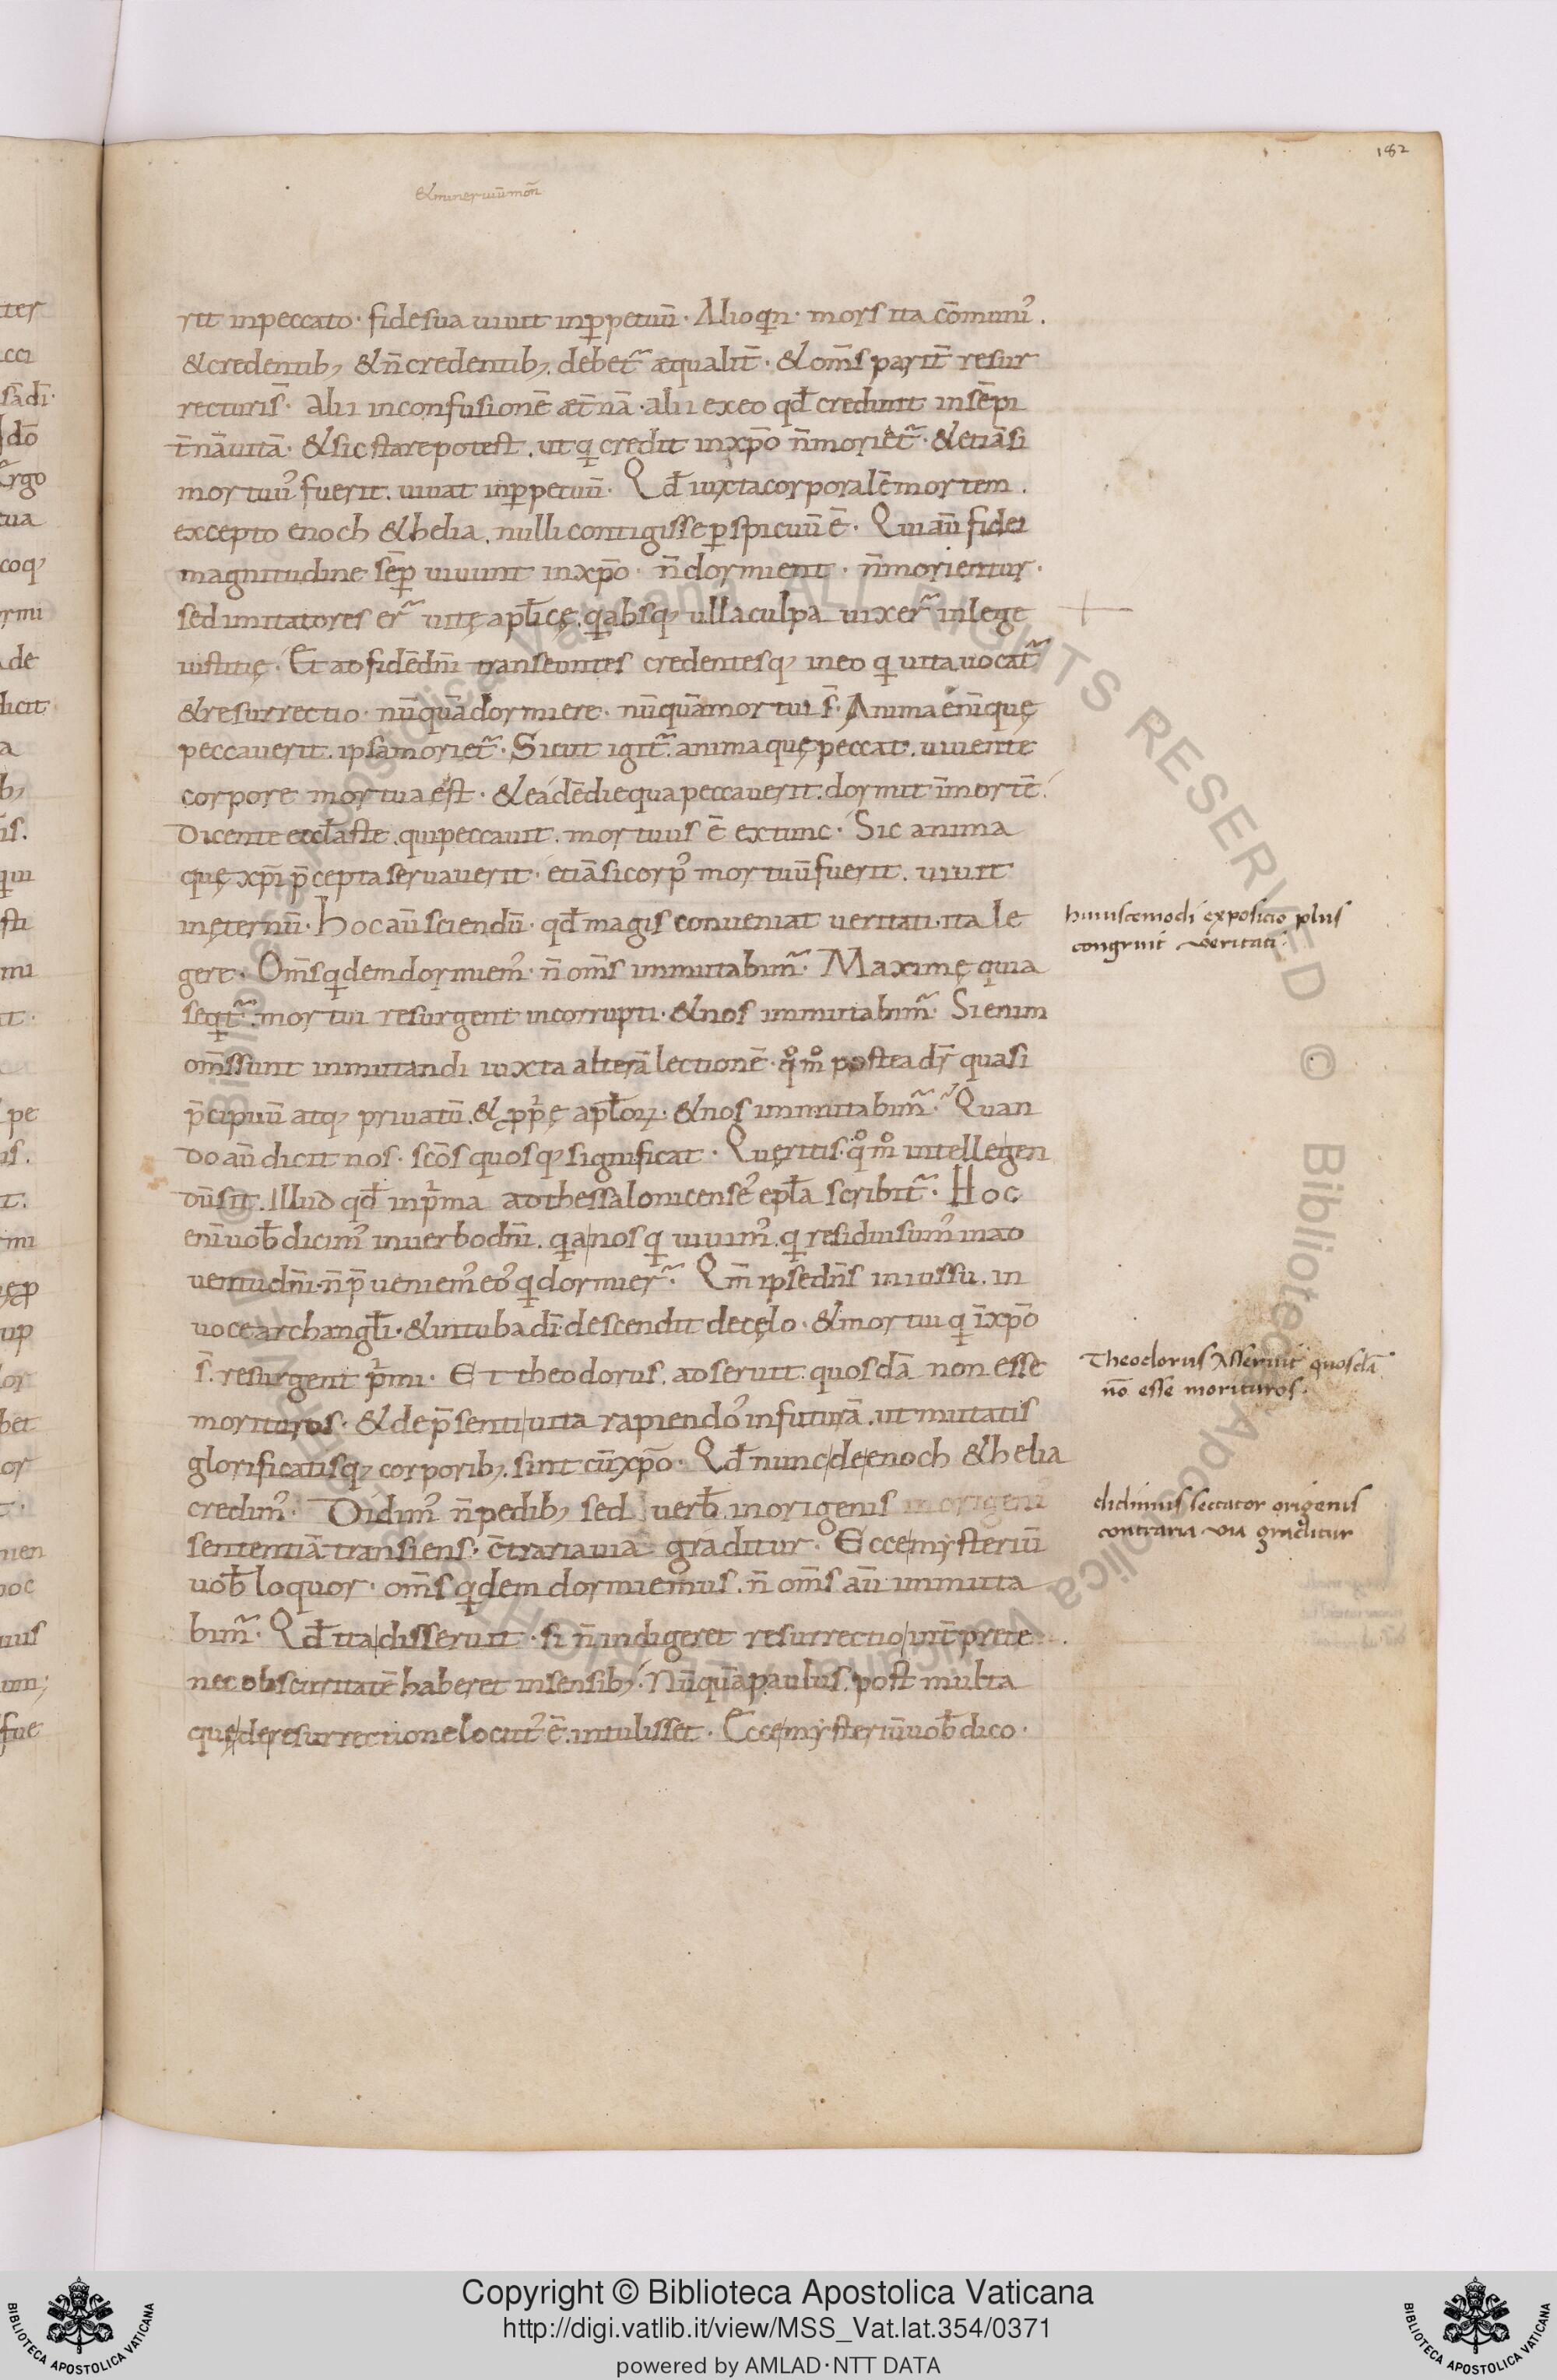 182
& mineruiū mon̄
rit in peccato · fide sua uiuit in ꝑpetuū · Alioqin · mors ita cōmunis .
& credentib; & n̄ credentib; . debet᷑ æqualit̄ · & om̄s parit̄ resur
recturis̄ · alii in confusionē æt̄nā · alii ex eo qđ credunt in sēpi
t̄nā uitā · & sic stare potest . ut qi credit in xp̄o n̄ moriet᷑ · & etiā si
mortuus fuerit . uiuat in ꝑpetuū · Qđ iuxta corporalē mortem .
excepto enoch & helia . nulli contigisse ꝑspicuū ē · Qui aū fidei
magnitudine sēꝑ uiuunt in xp̄o · n̄ dormient · n̄ morientur ·
sed imitatores er᷑ uitę apłicę . qi absq; ulla culpa uixer᷑ in lege
iustitię · Et ad fidē dn̄i transeuntes credentesq; in eo qi uita uocat᷑
& resurrectio · nūquā dormiere · nūquā mortui s̄ · Anima enī quę
peccauerit . ipsa moriet᷑ · Sicut igit᷑ anima quę peccat . uiuente
corpore mortua est · & eadē die qua peccauerit . dormit ī mortē .
dicente ecclāste . qui peccauit . mortuus ē ex tunc · Sic anima
quę xp̄i p̄cepta seruauerit · etiā si corpus mortuū fuerit . uiuit
in ęternū · Hoc aū sciendū · qđ magis conueniat ueritati . ita le
gere · Om̄s qidem dormiemus · n̄ om̄s immutabim᷑ · Maximę quia
seqit᷑ . mortui resurgent incorrupti · & nos immutabim᷑ · Si enim
om̄s sunt inmutandi iuxta alterā lectionē · qͦmͦ postea dr̄ quasi
p̄cipuū atq; priuatū . & ꝓprię apłoꝝ · & nos immutabim᷑ · Quan
do aū dicit nos · scōs quosq; significat · Quęritis . qͦmͦ intellegen
dū sit . Illud qđ in pima ad thessalonicenses epła scribit᷑ · Hoc
enī uob̄ dicimus in uerbo dn̄i . qia nos qi uiuimus . qi residui sumus in ad
uentū dn̄i · n̄ p̄ueniemus eos qi dormier᷑ · Qm̄ ipse dn̄s in iussu . in
uoce archangłi · & in tuba dī descendit de cęlo · & mortui qi ī xp̄o
s̄ . resurgent pimi · Et theodorus . adseruit . quosdā non esse
morituros · & de p̄senti uita rapiendos in futurā . ut mutatis
glorificatisq; corporib; . sint cū xp̄o · Qđ nunc de enoch & helia
credimus · Didimus n̄ pedib; sed uerb̄ . in origenis
sententiā transiens · c̄traria uiā graditur · Ecce mysteriū
uob̄ loquor · om̄s qidem dormiemus . n̄ om̄s aū immuta
bim᷑ · Qđ ita disseruit · si n̄ indigeret resurrectio int̄prete .
nec obscuritatē haberet in sensib; . Nūquā paulus . post multa
quę de resurrectione locutus ē . intulisset · Ecce mysteriū uob̄ dico ·
huiuscemodi exposicio plus
congruit veritati ·
Theodorus Asseruit quosdā
nō esse morituros ·
didimus sectator origenis
contraria via graditur
Copyright © Biblioteca Apostolica Vaticana
http://digi.vatlib.it/view/MSS_Vat.lat.354/0371
powered by AMLAD·NTT DATA
BIBLIOTECA APOSTOLICA VATICANA
BIBLIOTECA APOSTOLICA VATICANA